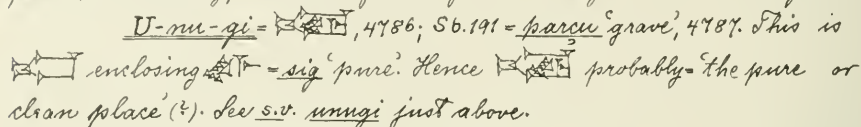 U-nu-gi = , 4786; Sb. 191 = parcu 'grave', 4787. This is
enclosing = sig 'pure'. Hence probably = 'the pure or
clean place' (?). See s.v. unugi just above.